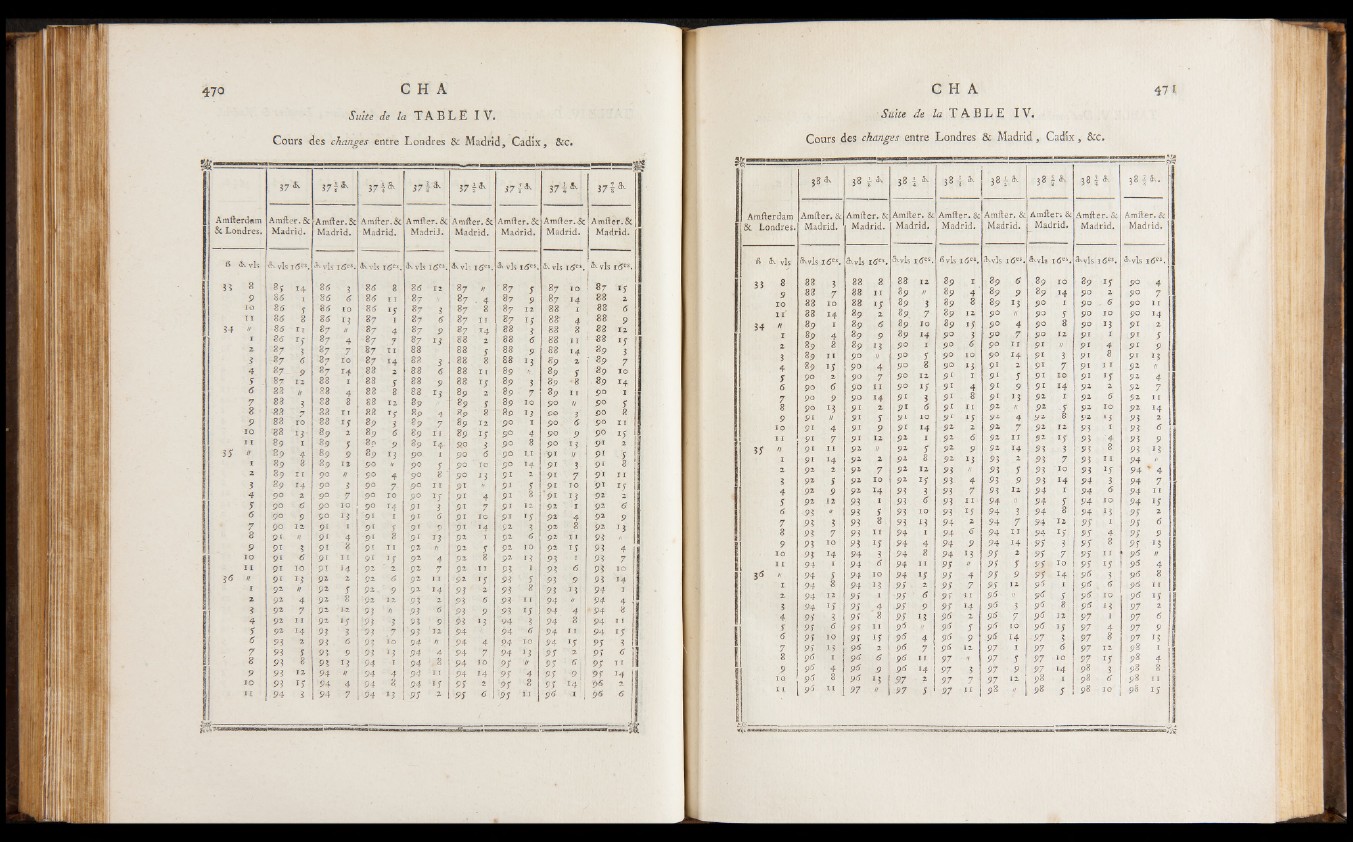 470 C H A
Suite de la TABLE IV.
Cours des changes entre Londres & Madrid, Cadix, &c.
37 37 1/8 37 1/4 37 37 1/2 37 37 37 7/8
Amsterdam Amster. & Amster. & Amster. & Amster. & Amster. & Amster. & Amster. & Amster. &
& Londres. Madrid. Madrid. Madrid. Madrid. Madrid. Madrid. Madrid. Madrid.
33 8 85 14 86 3 86 8 86 12 87 " 87 5 87 10 87 15
9 86 1 86 6 86 11 87 87 4 87 9 87 14 88 2
10 86 5 86 10 86 15 87 3 87 8 87 12 88 1 88 6
11 86 8 86 13 87 1 87 6 87 11 87 15 88 4 88 9
34 " 86 11 87 " 87 4 87 9 87 14 88 3 88 8 88 12
1 86 15 87 4 87 7 87 13 88 2 88 6 88 11 88 15
2 87 3 87 7 87 11 88 88 5 88 9 88 14 89 3
3 87 6 87 10 87 14 88 3 88 8 88 13 89 2 89 7
4 87 9 87 14 88 2 88 6 88 11 89 " 89 5 89 10
5 87 12 88 1 88 5 88 9 88 15 89 3 89 8 89 14
6 88 " 88 4 88 8 88 13 89 2 89 7 89 11 90 1
7 88 3 88 8 88 12 89 89 5 89 10 90 " 90 5
8 88 7 88 11 88 15 89 4 89 8 89 13 90 3 90 8
9 88 10 88 15 89 3 89 7 89 12 90 1 90 6 90 11
10 88 13 89 2 89 6 89 11 89 15 90 4 90 9 90 15
11 89 1 89 5 89 9 89 14 90 3 90 8 90 13 91 2
35 " 89 4 89 9 89 13 90 1 90 6 90 11 91 " 91 5
1 89 8 89 12 90 " 90 5 90 10 90 14 91 3 91 8
2 89 11 90 " 90 4 90 8 90 13 91 2 91 7 91 11
3 89 14 90 3 90 7 90 11 91 " 91 5 91 10 91 15
4 90 2 90 7 90 10 90 15 91 4 91 8 91 13 92 2
5 90 6 90 10 90 14 91 3 91 7 91 12 92 1 92 6
6 90 9 90 13 91 1 91 6 91 10 91 15 92 4 92 9
7 90 12 91 1 91 5 91 9 91 14 92 3 92 8 92 13
8 91 " 91 4 91 8 91 13 92 1 92 6 92 11 93 "
9 91 3 91 8 91 11 92 " 92 5 92 10 92 15 93 4
10 91 6 91 11 91 15 92 4 92 8 92 13 93 1 93 7
11 91 10 91 14 92 2 92 7 92 11 93 1 93 6 93 10
36 " 91 13 92 2 92 6 92 11 92 15 93 5 93 9 93 14
1 92 " 92 5 92 9 92 14 93 2 93 8 93 13 94 1
2 92 4 92 8 92 12 93 2 93 6 93 11 94 " 94 4
3 92 7 92 12 93 " 93 6 93 9 93 15 94 4 94 8
4 92 11 92 15 93 3 93 9 93 13 94 3 94 8 94 11
5 92 14 93 3 93 7 93 12 94 94 6 94 11 94 15
6 93 2 93 6 93 10 94 " 94 4 94 10 94 15 95 3
7 93 5 93 9 93 13 94 4 94 7 94 13 95 2 95 6
8 93 8 93 13 94 1 94 8 94 10 95 " 95 6 95 11
9 93 12 94 " 94 4 94 11 94 14 95 4 95 9 95 14
10 93 15 94 4 94 8 94 15 95 2 95 8 95 14 96 2
11 94 3 94 7 94 13 95 2 95 6 95 11 96 1 96 6
C H A 471
Suite de la TABLE IV.
Cours des changes entre Londres & Madrid, Cadix, &c.
38 38 1/8 38 1/4 38 38 1/2 38 38 38
Amsterdam Amster. & Amster. & Amster. & Amster. & Amster. & Amster. & Amster. & Amster. &
& Londres. Madrid. Madrid. Madrid. Madrid. Madrid. Madrid. Madrid. Madrid.
33 8 88 3 88 8 88 12 89 1 89 6 89 10 89 15 90 4
9 88 7 88 11 89 " 89 4 89 9 89 14 90 2 90 7
10 88 10 88 15 89 3 89 8 89 13 90 1 90 6 90 11
11 88 14 89 2 89 7 89 12 90 " 90 5 90 10 90 14
34 " 89 1 89 6 89 10 89 15 90 4 90 8 90 13 91 2
1 89 4 89 9 89 14 90 3 90 7 90 12 91 1 91 5
2 89 8 89 13 90 1 90 6 90 11 91 " 91 4 91 9
3 89 11 90 " 90 5 90 10 90 14 91 3 91 8 91 13
4 89 15 90 4 90 8 90 13 91 2 91 7 91 11 92 "
5 90 2 90 7 90 12 91 1 91 5 91 10 91 15 92 4
6 90 6 90 11 90 15 91 4 91 9 91 14 92 2 92 7
7 90 9 90 14 91 3 91 8 91 13 92 1 92 6 92 11
8 90 13 91 2 91 6 91 11 92 " 92 5 92 10 92 14
9 91 " 91 5 91 10 91 15 92 4 92 8 92 13 93 2
10 91 4 91 9 91 14 92 2 92 7 92 12 93 1 93 6
11 91 7 91 12 92 1 92 6 92 11 92 15 93 4 93 9
35 " 91 11 92 " 92 5 92 9 92 14 93 3 93 8 93 13
1 91 14 92 2 92 8 92 13 93 2 93 7 93 11 94 "
2 92 2 92 7 92 12 93 " 93 5 93 10 93 15 94 4
3 92 5 92 10 92 15 93 4 93 9 93 14 94 3 94 7
4 92 9 92 14 93 3 93 7 93 12 94 1 94 6 94 11
5 92 12 93 1 93 6 93 11 94 " 94 5 94 10 94 15
6 93 " 93 5 93 10 93 15 94 3 94 8 94 13 95 2
7 93 3 93 8 93 13 94 2 94 7 94 12 95 1 95 6
8 93 7 93 11 94 1 94 6 94 11 94 15 95 4 95 9
9 93 10 93 15 94 4 94 9 94 14 95 3 95 8 95 13
10 93 14 94 3 94 8 94 13 95 2 95 7 95 11 96 "
11 94 1 94 6 94 11 95 " 95 5 95 10 95 15 96 4
36 " 94 5 94 10 94 15 95 4 95 9 95 14 96 3 96 8
1 94 8 94 13 95 2 95 7 95 12 96 1 96 6 96 11
2 94 12 95 1 95 6 95 11 96 " 96 5 96 10 96 15
3 94 15 95 4 95 9 95 14 96 3 96 8 96 13 97 2
4 95 3 95 8 95 13 96 2 96 7 96 12 97 1 97 6
5 95 6 95 11 " 96 5 96 10 96 15 97 4 97 9
6 95 10 95 15 96 4 96 9 96 14 97 3 97 8 97 13
7 95 13 96 2 96 7 96 12 97 1 97 6 97 12 98 1
8 96 1 96 6 96 11 97 " 97 5 97 10 97 15 98 4
9 96 4 96 9 96 14 97 3 97 9 97 14 98 3 98 8
10 96 8 96 13 97 2 97 7 97 12 98 1 98 6 98 11
11 95 11 97 " 97 5 97 11 98 " 98 5 98 10 98 15